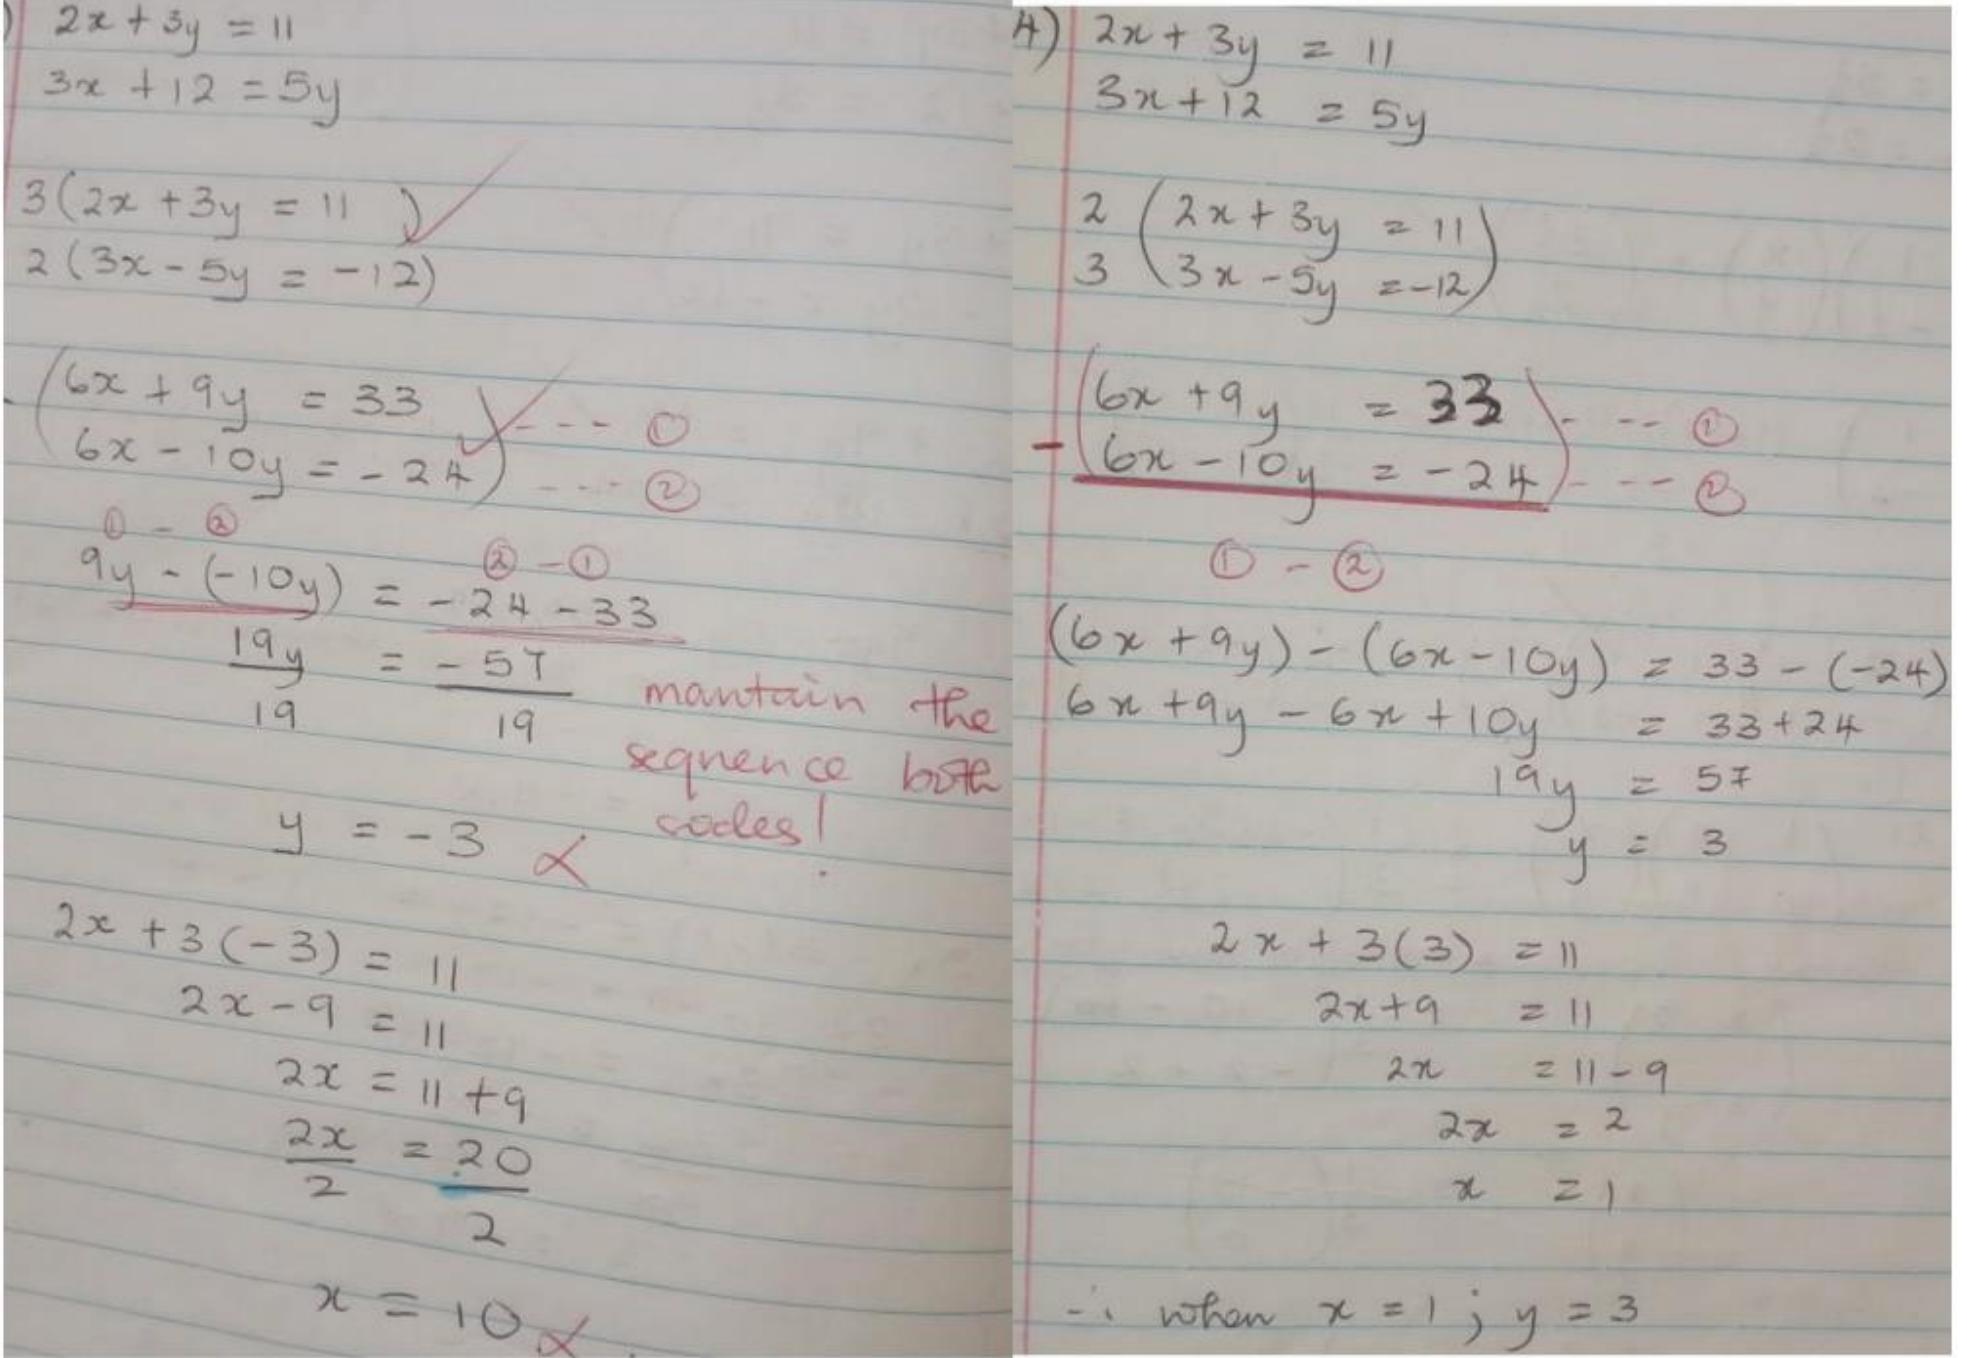 ) 2x + 3y = 11
3x + 12 = 5y
3(2x + 3y = 11 )
2(3x - 5y = -12)
- (6x + 9y = 33 --- ①
6x - 10y = -24) --- ②
① - ② ② - ①
9y - (-10y) = -24 - 33
19y = -57
19 19
mantain the
sequence both
sides!
y = -3
2x + 3(-3) = 11
2x - 9 = 11
2x = 11 + 9
2x = 20
2 2
x = 10
4) 2x + 3y = 11
3x + 12 = 5y
2 (2x + 3y = 11)
3 (3x - 5y = -12)
(6x + 9y = 33) --- ①
- (6x - 10y = -24) --- ②
① - ②
(6x + 9y) - (6x - 10y) = 33 - (-24)
6x + 9y - 6x + 10y = 33 + 24
19y = 57
y = 3
2x + 3(3) = 11
2x + 9 = 11
2x = 11 - 9
2x = 2
x = 1
∴ when x = 1 ; y = 3